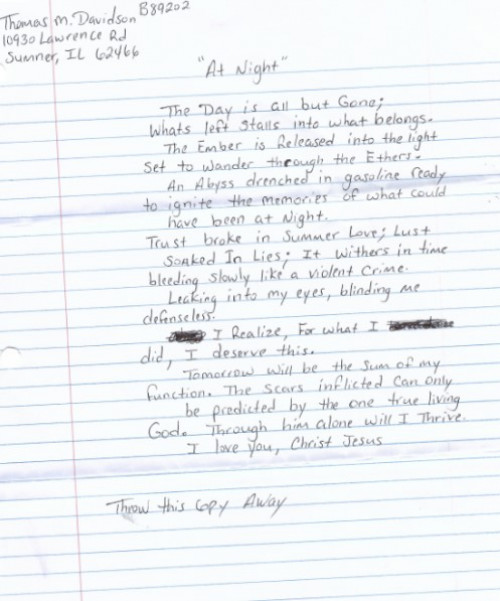 Thomas M. Davidson B89202
10930 Lawrence Rd
Sumner, IL 62466
"At Night"
The Day is all but Gone;
Whats left Stalls into what belongs.
The Ember is Released into the light
Set to Wander through the Ethers.
An Abyss drenched in gasoline ready
to ignite the memories of what could
have been at Night.
Trust broke in Summer Love; Lust
Soaked In Lies; It Withers in time
bleeding Slowly like a violent Crime.
Leaking into my eyes, blinding me
defenseless.
I Realize, For what I
did, I deserve this.
Tomorrow will be the Sum of my
function. The Scars inflicted Can only
be predicted by the one true living
God. Through him alone will I Thrive.
I love you, Christ Jesus
Throw this Copy Away